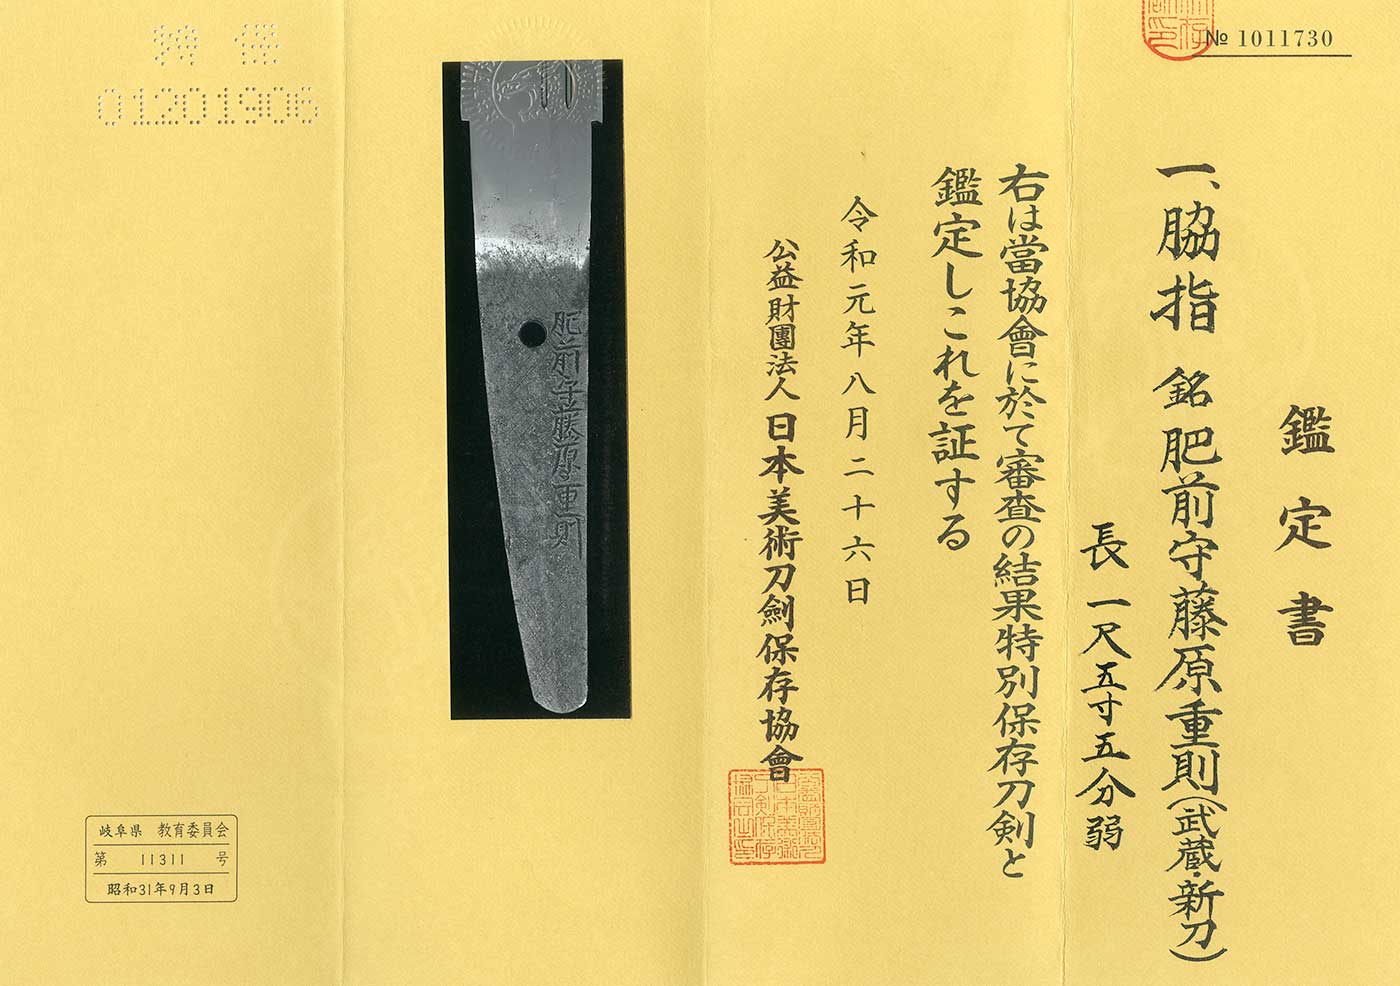 № 1011730
鑑定書
一、脇指 銘 肥前守藤原重則(武蔵・新刀)
長 一尺五寸五分弱
右は當協會に於て審査の結果特別保存刀剣と
鑑定しこれを証する
令和元年八月二十六日
公益財團法人 日本美術刀劍保存協會
肥前守藤原重則
01201906
岐阜県 教育委員会
第 11311 号
昭和31年9月3日